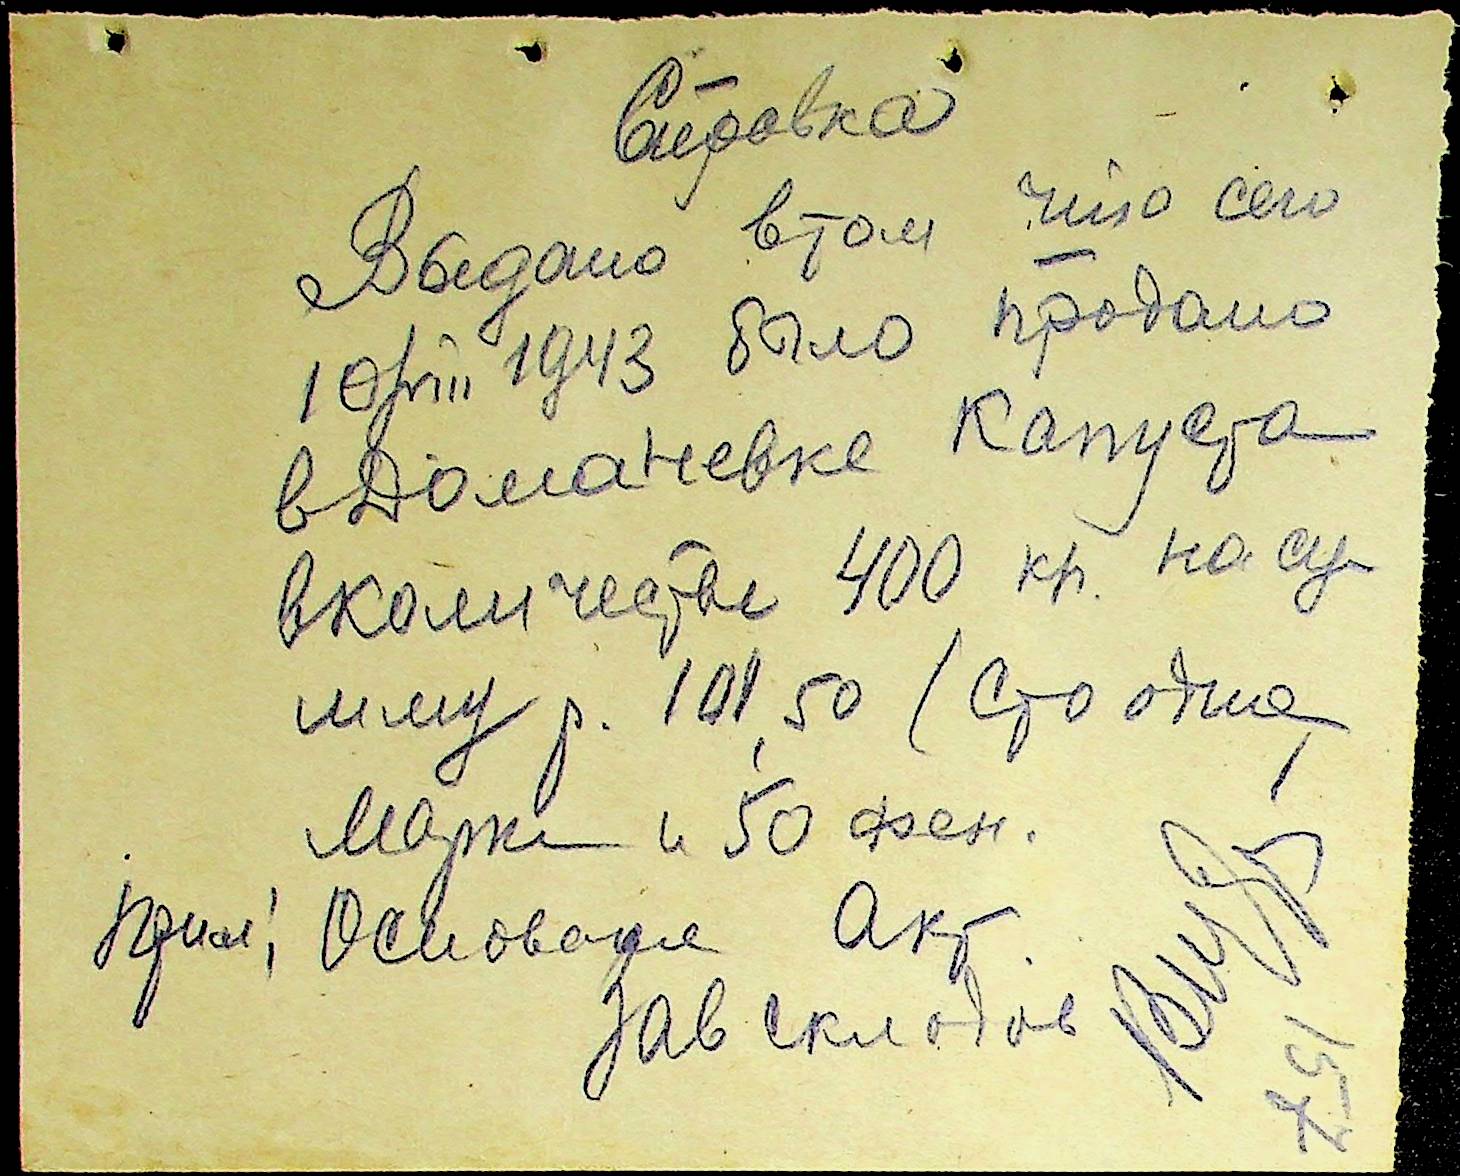 Справка
Выдано втом что сего
1943 было продано
в Доманевке капуста
вколичестве 400 кг. на су
мму р. 101,50 (Сто одна
Марка и 50 фен.
Прим! Основание Акт.
Зав складов